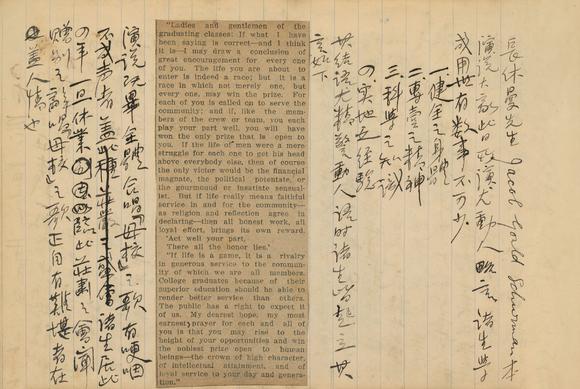 長休曼先生 Jacob Gould Schurman 本
演說大旨此日致演尤動人略言諸生學
成用世有數事不可少
健全之身體
二專壹之精神
三科學之知識
四實地之經驗
其結語尤精警動人語時諸生皆起立其
言如下
"Ladies and gentlemen of the
graduating classes: If what I have
been saying is correct—and I think
it is—I may draw a conclusion of
great encouragement for every one
of you. The life you are about to
enter is indeed a race; but it is a
race in which not merely one, but
every one, may win the prize. For
each of you is called on to serve the
community; and if, like the mem-
bers of the crew or team, you each
play your part well, you will have
won the only prize that is open to
you. If the life of men were a mere
struggle for each one to get his head
above everybody else, then of course
the only victor would be the financial
magnate, the political potentate, or
the gourmound or insatiate sensual-
ist. But if life really means faithful
service in and for the community—
as religion and reflection agree in
declaring—then all honest work, all
loyal effort, brings its own reward.
'Act well your part,
There all the honor lies.'
"If life is a game, it is a rivalry
in generous service to the commun-
ity of which we are all members.
College graduates because of their
superior education should be able to
render better service than others.
The public has a right to expect it
of us. My dearest hope, my most
earnest prayer for each and all of
you is that you may rise to the
height of your opportunities and win
the noblest prize open to human
beings—the crown of high character,
of intellectual attainment, and of
loyal service to your day and genera-
tion."
演說既畢全體合唱「母校」之歌有哽咽
不成聲者蓋此種莊嚴之盛會諸生居此
四年一旦休業臨此莊肅之會聞
贈別之辭唱「母校」之歌正自有難堪者在
蓋人情也